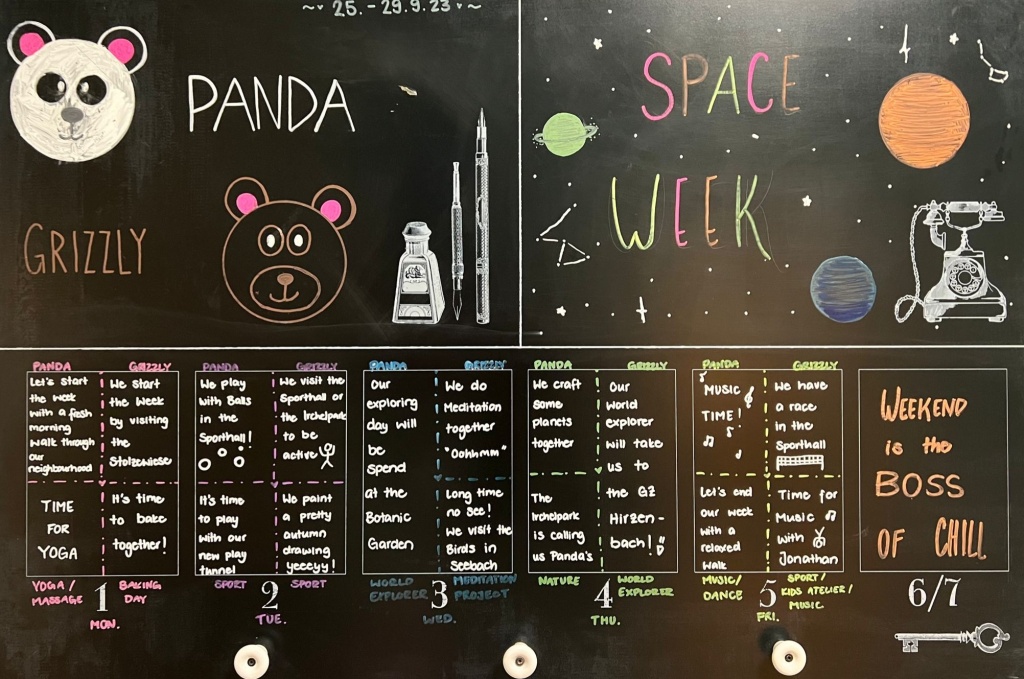 25.-29.9.23
PANDA
GRIZZLY
SPACE
WEEK
PANDA
Let's start
the week
with a fresh
morning
walk through
our
neighbourhood
TIME
FOR
YOGA
YOGA/
MASSAGE
GRIZZLY
We start
the week
by visiting
the
Stolzewiese
It's time
to bake
together!
BAKING
DAY
1
MON.
PANDA
We play
with Balls
in the
Sporthall!
It's time
to play
with our
new play
tunnel
SPORT
GRIZZLY
We visit the
Sporthall or
the Irchelpark
to be
active
We paint
a pretty
autumn
drawing
yeeeyy!
SPORT
2
TUE.
PANDA
Our
exploring
day will
be
spend
at the
Botanic
Garden
WORLD
EXPLORER
GRIZZLY
We do
Meditation
together
"Oohhmm"
Long time
no see!
We visit the
Birds in
Seebach
MEDITATION
PROJECT
3
WED.
PANDA
We craft
some
planets
together
The
Irchelpark
is calling
us Panda's
NATURE
GRIZZLY
Our
world
explorer
will take
us to
the GZ
Hirzen-
bach!
WORLD
EXPLORER
4
THU.
PANDA
MUSIC
TIME!
Let's end
our week
with a
relaxed
walk
MUSIC/
DANCE
GRIZZLY
We have
a race
in the
Sporthall
Time for
Music
with
Jonathan
SPORT/
KIDS ATELIER/
MUSIC
5
FRI.
WEEKEND
is the
BOSS
OF CHILL
6/7